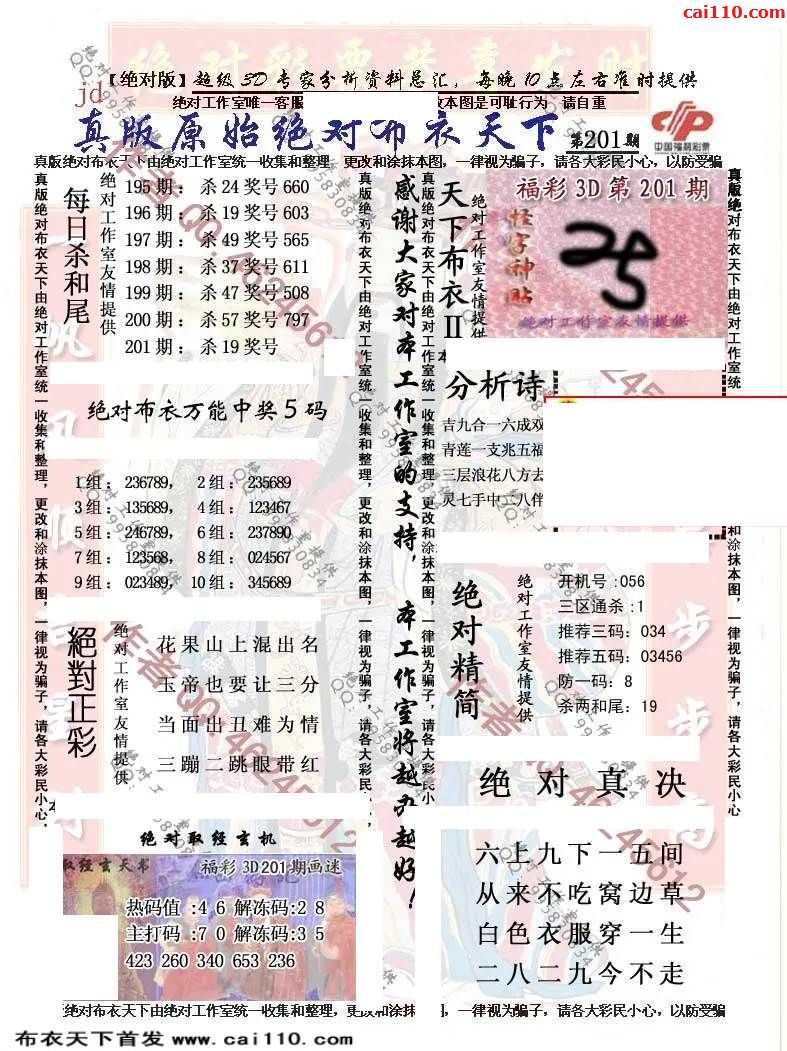 cai110.com
【绝对版】超级3D专家分析资料总汇，每晚10点左右准时提供
jd
绝对工作室唯一客服
改本图是可耻行为 请自重
真版原始绝对布衣天下 第201期
中国福利彩票
真版绝对布衣天下由绝对工作室统一收集和整理，更改和涂抹本图，一律视为骗子，请各大彩民小心，以防受骗
真版绝对布衣天下由绝对工作室统一收集和整理，更改和涂抹本图，一律视为骗子，请各大彩民小心，
每日杀和尾
绝对工作室友情提供
195期：杀24奖号660
196期：杀19奖号603
197期：杀49奖号565
198期：杀37奖号611
199期：杀47奖号508
200期：杀57奖号797
201期：杀19奖号
绝对布衣万能中奖5码
1组：236789， 2组：235689
3组：135689， 4组：123467
5组：246789， 6组：237890
7组：123568， 8组：024567
9组：023489， 10组：345689
絕對正彩
绝对工作室友情提供
花果山上混出名
玉帝也要让三分
当面出丑难为情
三蹦二跳眼带红
绝对取经玄机
取经玄天书
福彩3D201期画迷
热码值:46解冻码:28
主打码:70解冻码:35
423 260 340 653 236
真版绝对布衣天下由绝对工作室统一收集和整理，更改和涂抹本图，一律视为骗子，请各大彩民小心，
感谢大家对本工作室的支持，本工作室将越办越好！
真版绝对布衣天下由绝对工作室统一收集和整理，更改和涂抹本图，一律视为骗子，请各大彩民小
天下布衣II
绝对工作室友情提供
福彩3D第201期
怪字神贴
25
绝对工作室友情提供
分析诗
吉九合一六成双
青莲一支兆五福
三层浪花八方去
灵七手中二八伴
绝对精简
绝对工作室友情提供
开机号:056
三区通杀:1
推荐三码：034
推荐五码：03456
防一码：8
杀两和尾：19
绝对真决
六上九下一五间
从来不吃窝边草
白色衣服穿一生
二八二九今不走
真版绝对布衣天下由绝对工作室统
和涂抹本图，一律视为骗子，请各大彩民小心
绝对布衣天下由绝对工作室统一收集和整理，更改和涂抹
，一律视为骗子，请各大彩民小心，以防受骗
布衣天下首发 www.cai110.com
作者QQ:462451612